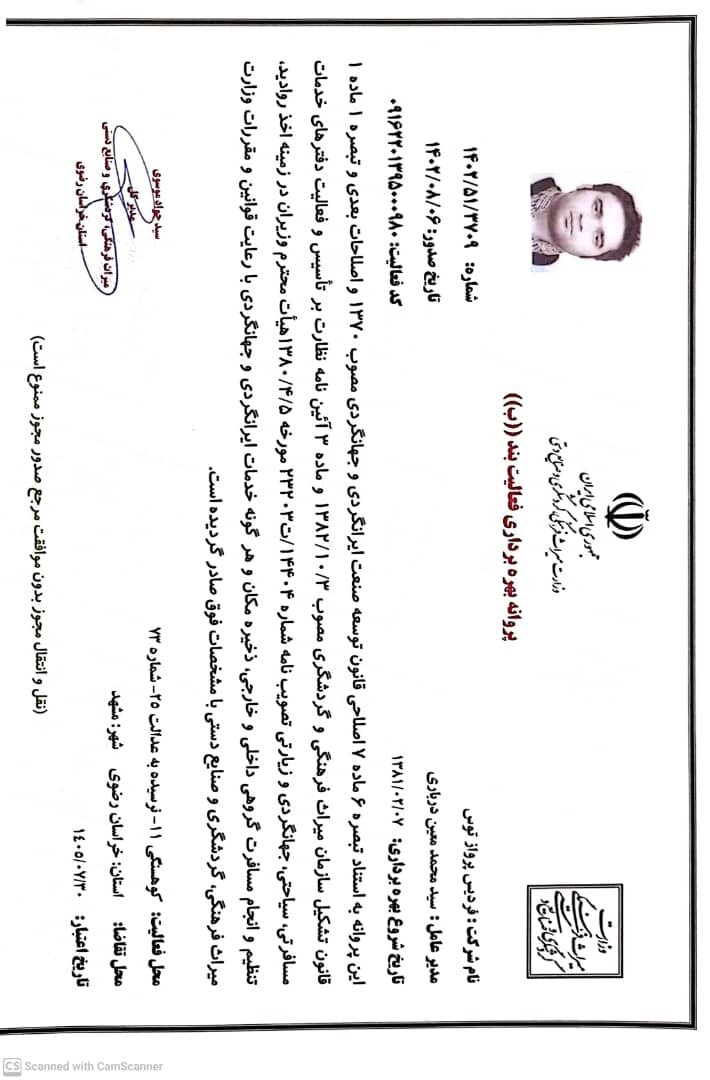 جمهوری اسلامی ایران
وزارت میراث فرهنگی، گردشگری و صنایع دستی
پروانه بهره برداری فعالیت بند ((ب))
شماره: ۱۴۰۲/۵۱/۳۷۰۹
تاریخ صدور: ۱۴۰۲/۰۸/۰۶
کد فعالیت: ۰۹۱۶۲۲۰۱۳۹۵۰۰۰۹۸۰
نام شرکت : فردیس پرواز توس
مدیر عامل : سید محمد معین درباری
تاریخ شروع بهره برداری: ۱۳۸۱/۰۲/۰۷
این پروانه به استناد تبصره ۶ ماده ۷ اصلاحی قانون توسعه صنعت ایرانگردی و جهانگردی مصوب ۱۳۷۰ و اصلاحات بعدی و تبصره ۱ ماده ۱
قانون تشکیل سازمان میراث فرهنگی و گردشگری مصوب ۱۳۸۲/۱۰/۳ و ماده ۳ آئین نامه نظارت بر تأسیس و فعالیت دفترهای خدمات
مسافرتی، سیاحتی، جهانگردی و زیارتی تصویب نامه شماره ۱۴۴۰۴/ت۲۳۲۰۳ مورخه ۱۳۸۰/۴/۵ هیأت محترم وزیران در زمینه اخذ روادید،
تنظیم و انجام مسافرت گروهی داخلی و خارجی، ذخیره مکان و هر گونه خدمات ایرانگردی و جهانگردی با رعایت قوانین و مقررات وزارت
میراث فرهنگی، گردشگری و صنایع دستی با مشخصات فوق صادر گردیده است.
محل فعالیت: کوهسنگی ۱۱- نرسیده به عدالت ۲۵- شماره ۷۳
محل تقاضا: استان: خراسان رضوی شهر: مشهد
تاریخ اعتبار: ۱٤۰۵/۰۷/۳۰
سید جواد موسوی
مدیر کل
میراث فرهنگی، گردشگری و صنایع دستی
استان خراسان رضوی
(نقل و انتقال مجوز بدون موافقت مرجع صدور مجوز ممنوع است)
CS Scanned with CamScanner